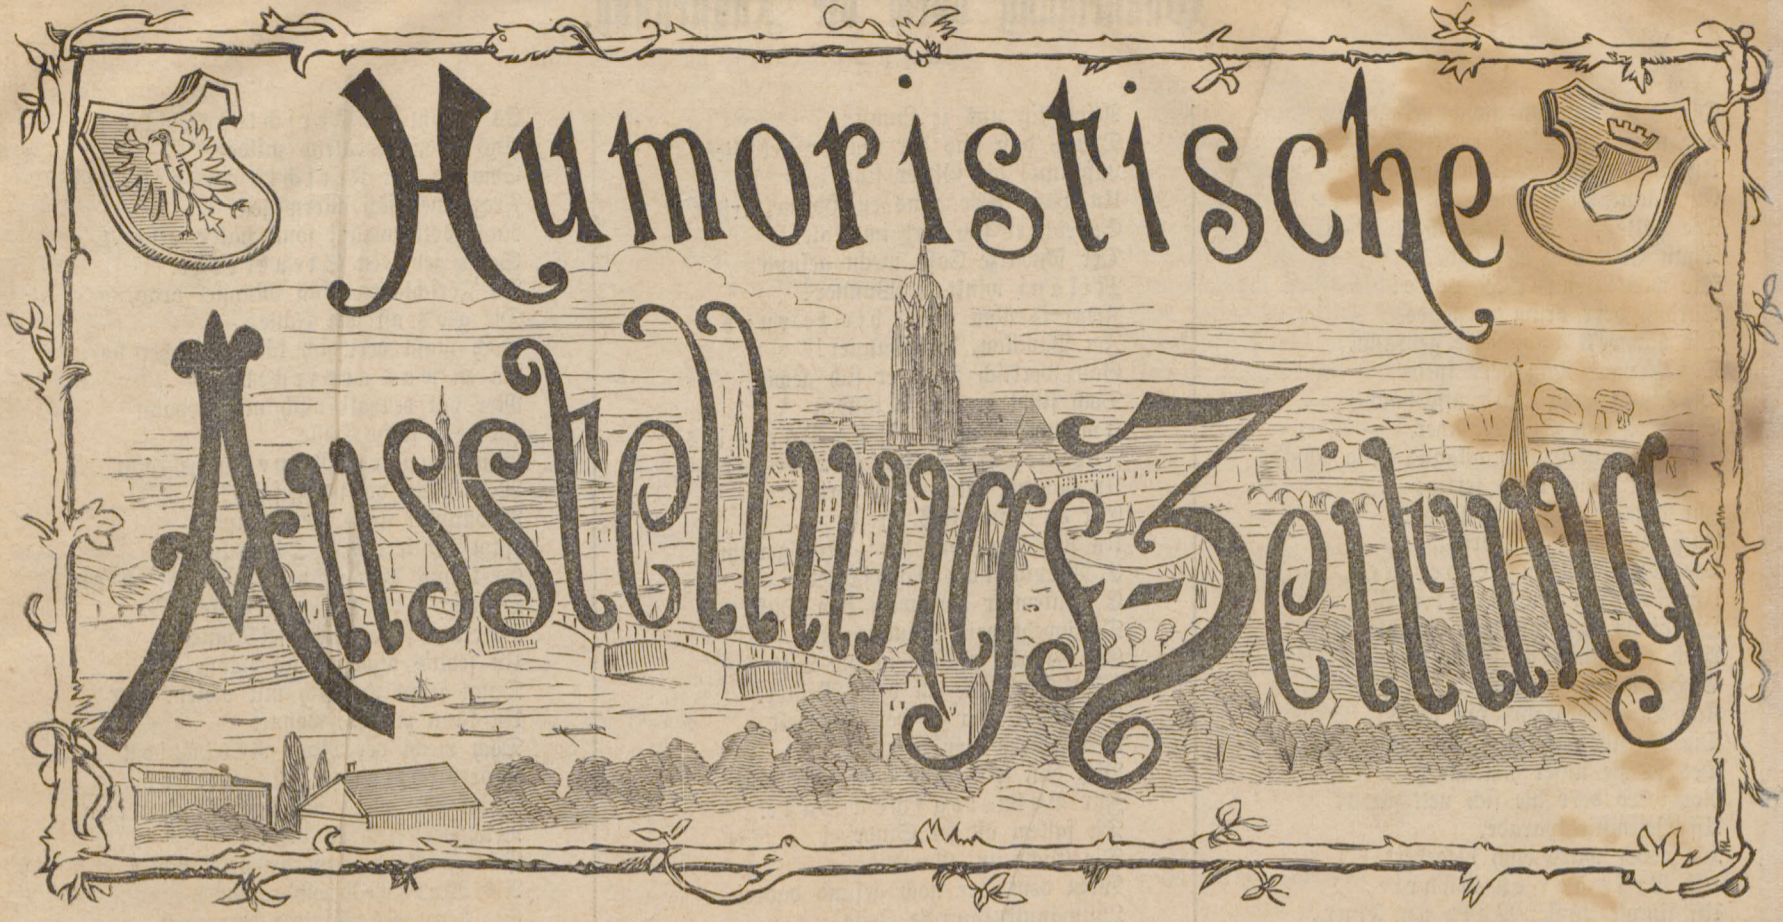 Humoristische
Ausstellungs-Zeitung